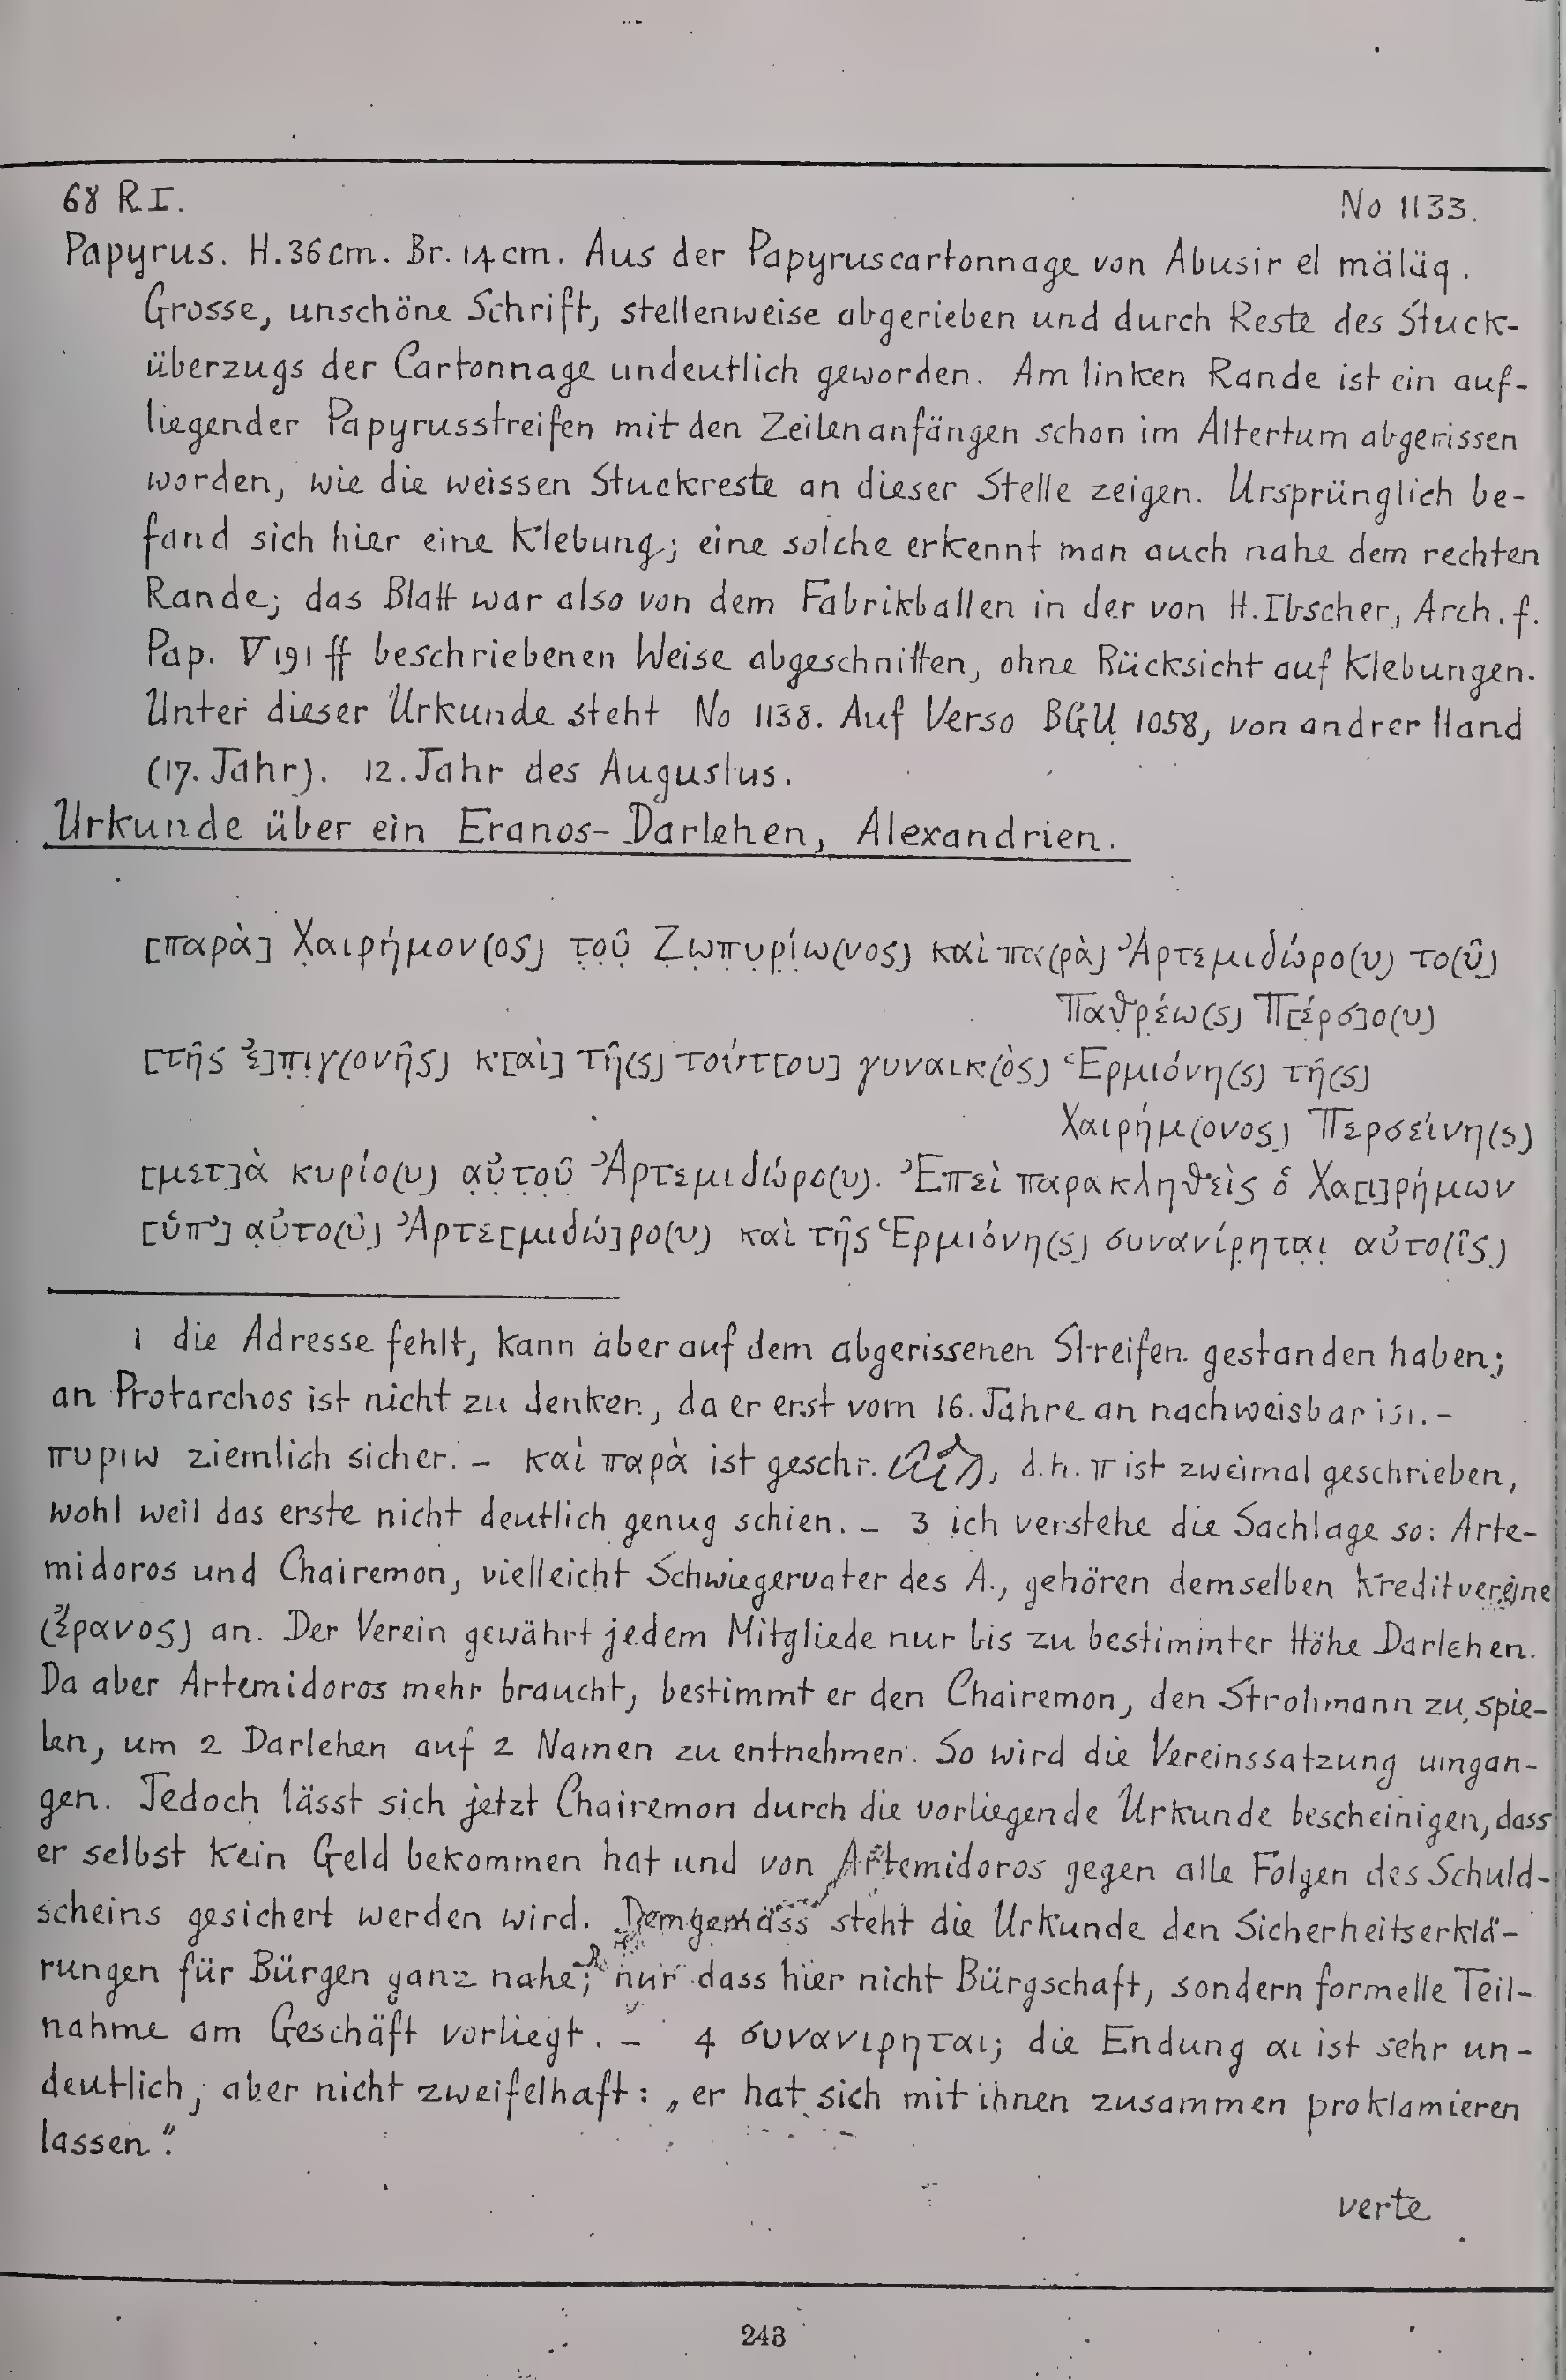 68 R.I. No 1133.
Papyrus. H. 36 cm. Br. 14 cm. Aus der Papyruscartonnage von Abusir el mäläq.
Grosse, unschöne Schrift, stellenweise abgerieben und durch Reste des Stuck-
überzugs der Cartonnage undeutlich geworden. Am linken Rande ist ein auf-
liegender Papyrusstreifen mit den Zeilenanfängen schon im Altertum abgerissen
worden, wie die weissen Stuckreste an dieser Stelle zeigen. Ursprünglich be-
fand sich hier eine Klebung; eine solche erkennt man auch nahe dem rechten
Rande; das Blatt war also von dem Fabrikballen in der von H. Ibscher, Arch. f.
Pap. V 191 ff beschriebenen Weise abgeschnitten, ohne Rücksicht auf Klebungen.
Unter dieser Urkunde steht No 1138. Auf Verso BGU 1058, von andrer Hand
(17. Jahr). 12. Jahr des Augustus.
Urkunde über ein Eranos-Darlehen, Alexandrien.
[παρὰ] Χ̣αιρήμον(ος) τ̣ο̣ῦ̣ Ζ̣ω̣π̣υ̣ρ̣ί̣ω(νος) καὶ πα(ρὰ) Ἀρτεμιδώρο(υ) το(ῦ)
Παθ̣ρέω(ς) Π[έρσ]ο(υ)
[τῆς ἐ]π̣ι̣γ(ονῆς) κ[αὶ] τῆ(ς) τούτ[ου] γυναικ(ὸς) Ἑρμιόνη(ς) τῆ(ς)
Χαιρήμ(ονος) Περσείνη(ς)
[μετ]ὰ κυρίο(υ) α̣ὐ̣τ̣ο̣ῦ̣ Ἀρτεμιδώρο(υ). Ἐπεὶ παρακληθεὶς ὁ Χα[ι]ρήμων
[ὑπ’] α̣ὐ̣το(ῦ) Ἀρτε[μιδώ]ρο(υ) καὶ τῆς Ἑρμιόνη(ς) συνανίρ̣ητα̣ι̣ αὐτο(ῖς)
1 die Adresse fehlt, kann aber auf dem abgerissenen Streifen gestanden haben;
an Protarchos ist nicht zu denken, da er erst vom 16. Jahre an nachweisbar ist. –
πυριω ziemlich sicher. – καὶ παρὰ ist geschr. , d. h. π ist zweimal geschrieben,
wohl weil das erste nicht deutlich genug schien. – 3 ich verstehe die Sachlage so: Arte-
midoros und Chairemon, vielleicht Schwiegervater des A., gehören demselben Kreditvereine
(ἔρανος) an. Der Verein gewährt jedem Mitgliede nur bis zu bestimmter Höhe Darlehen.
Da aber Artemidoros mehr braucht, bestimmt er den Chairemon, den Strohmann zu spie-
len, um 2 Darlehen auf 2 Namen zu entnehmen. So wird die Vereinssatzung umgan-
gen. Jedoch lässt sich jetzt Chairemon durch die vorliegende Urkunde bescheinigen, dass
er selbst kein Geld bekommen hat und von Artemidoros gegen alle Folgen des Schuld-
scheins gesichert werden wird. Demgemäss steht die Urkunde den Sicherheitserklä-
rungen für Bürgen ganz nahe; nur dass hier nicht Bürgschaft, sondern formelle Teil-
nahme am Geschäft vorliegt. – 4 συνανιρηται; die Endung αι ist sehr un-
deutlich, aber nicht zweifelhaft: „er hat sich mit ihnen zusammen proklamieren
lassen".
verte
243